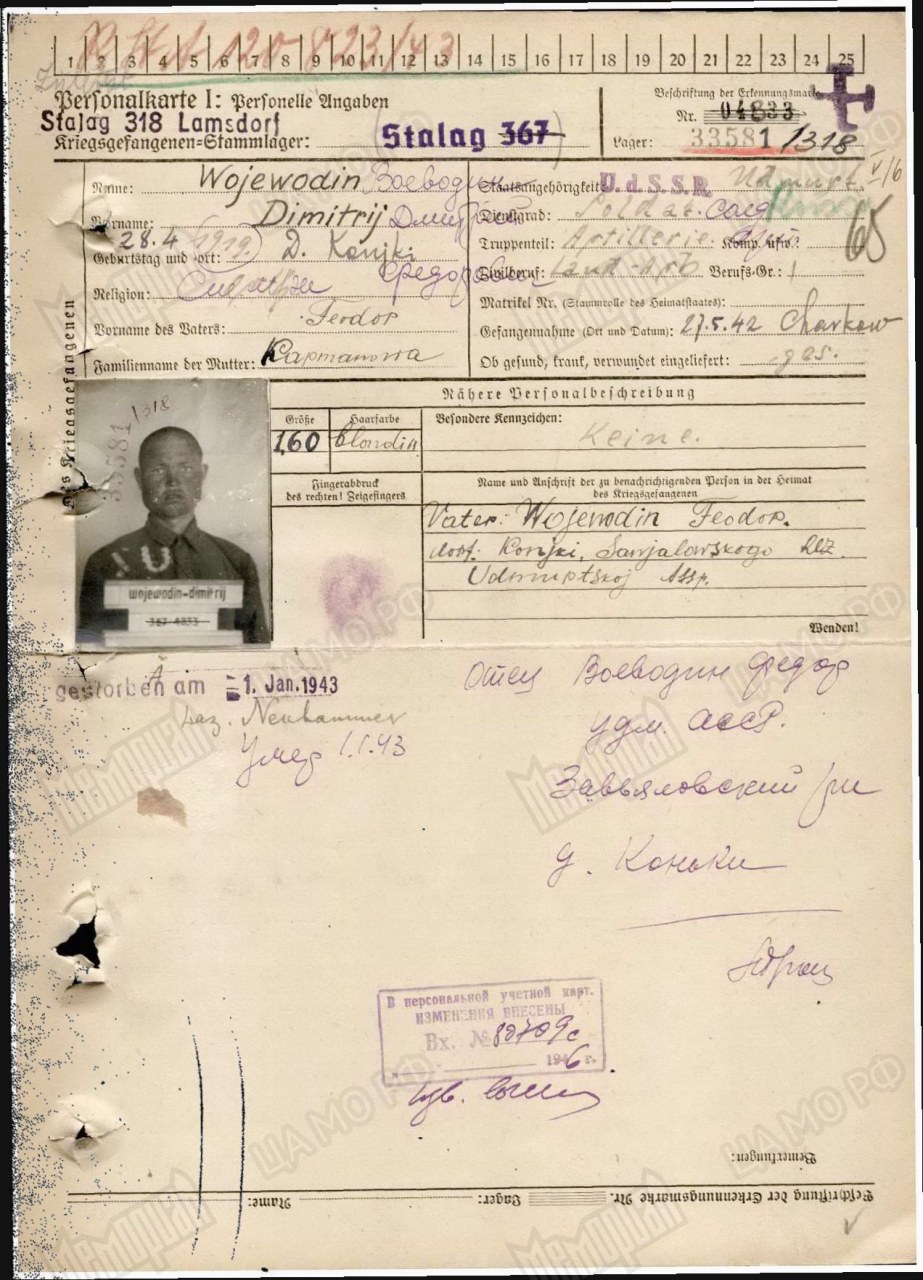 1 2 3 4 5 6 7 8 9 10 11 12 13 14 15 16 17 18 19 20 21 22 23 24 25
Personalkarte I: Personelle Angaben
Beschriftung der Erkennungsmarke
Stalag 318 Lamsdorf
Nr. 04833
Kriegsgefangenen-Stammlager: Stalag 367
Lager: 33581/318
Des Kriegsgefangenen
Name: Wojewodin Воеводин
Staatsangehörigkeit: U.d.S.S.R. Udmurt. V/6
Vorname: Dimitrij Дмитрий
Dienstgrad: Soldat. солд
65
Geburtstag und -ort: 28.4 1919. D. Konjki
Truppenteil: Artillerie Komp. usw.:
Федорович
Zivilberuf: Land-Arb Berufs-Gr.: 1
Religion:
Matrikel Nr. (Stammrolle des Heimatstaates):
Vorname des Vaters: Feodor
Gefangennahme (Ort und Datum): 27.5.42 Charkow
Familienname der Mutter: Kapmanowa
Ob gesund, krank, verwundet eingeliefert: ges.
Nähere Personalbeschreibung
Größe Haarfarbe Besondere Kennzeichen:
1,60 blondin Keine.
33581/318
Fingerabdruck des rechten! Zeigefingers
Name und Anschrift der zu benachrichtigenden Person in der Heimat des Kriegsgefangenen
Vater: Wojewodin Feodor.
dorf. Konjki, Sawjalowskogo
Udmurtskoj Assr.
wojewodin-dimitrij
367 4833
Wenden!
gestorben am 1. Jan. 1943
Laz. Neuhammer
Умер 1.1.43
Отец Воеводин Федор
Удм. АССР.
Завьяловский рн
д. Коньки
В персональной учетной карт.
ИЗМЕНЕНИЯ ВНЕСЕНЫ
Вх. № 82709с
1946 г.
Bemerkungen:
Beschriftung der Erkennungsmarke Nr. Lager: Name:
Мемориал
ЦАМО РФ